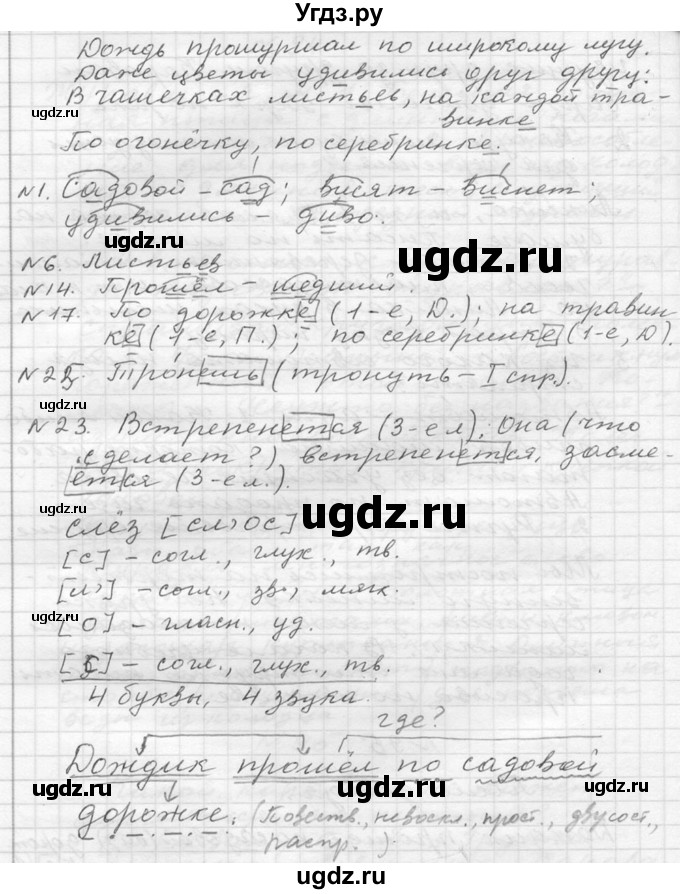 Угдз.ру
Дождь прошуршал по широкому лугу.
Даже цветы удивились друг другу:
В чашечках листьев, на каждой тра-
винке
По огонёчку, по серебринке.
№1. Садовой – сад; висят – виснет;
удивились – диво.
№6. Листьев
№14. Прошёл – шедший.
№17. По дорожке (1-е, Д.); на травин
ке (1-е, П.); по серебринке (1-е, Д).
№22. Тронешь (тронуть – I спр.).
№23. Встрепенется (3-е л), Она (что
сделает?) встрепенется, засме-
ётся (3-е л.).
слёз [сл'ос]
[с] – согл., глух., тв.
[л'] – согл., зв., мягк.
[о] – гласн., уд.
[с] – согл., глух., тв.
4 буквы, 4 звука.
где?
Дождик прошёл по садовой
дорожке. (Повеств., невоскл., прост., двусост.,
распр.).
ugdz.ru
ugdz.ru
ugdz.ru
ugdz.ru
ugdz.ru
ugdz.ru
ugdz.ru
ugdz.ru
ugdz.ru
ugdz.ru
ugdz.ru
ugdz.ru
ugdz.ru